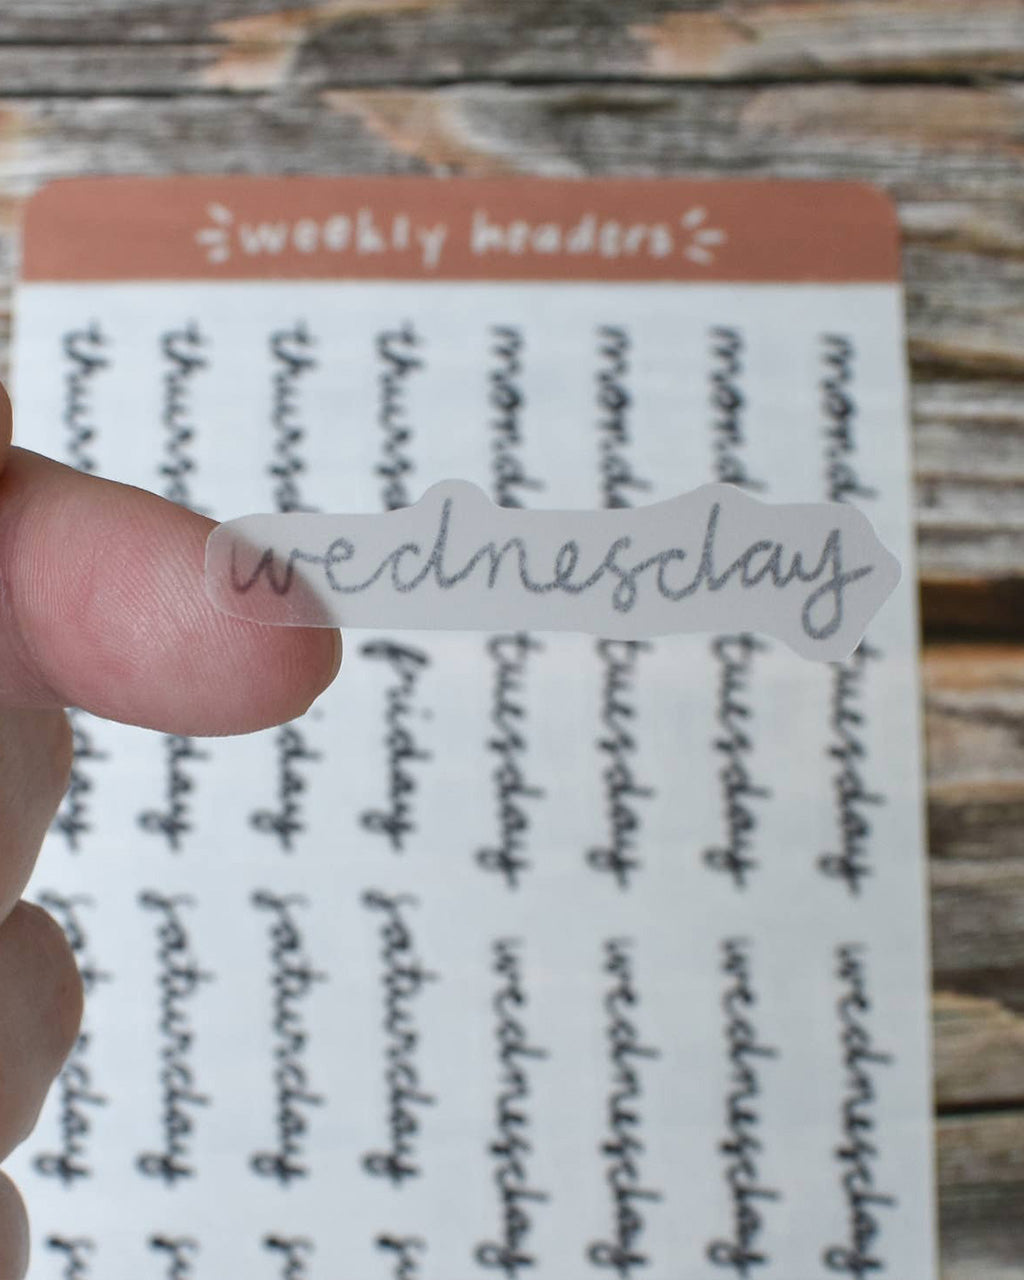 weekly headers
thurs
thurs
thursd
thurs
mond
mond
mond
mond
wednesday
day
day
day
friday
tuesday
tuesday
tuesday
tuesday
saturday
saturday
saturday
saturday
wednesday
wednesday
wednesday
wednesday
su
su
su
su